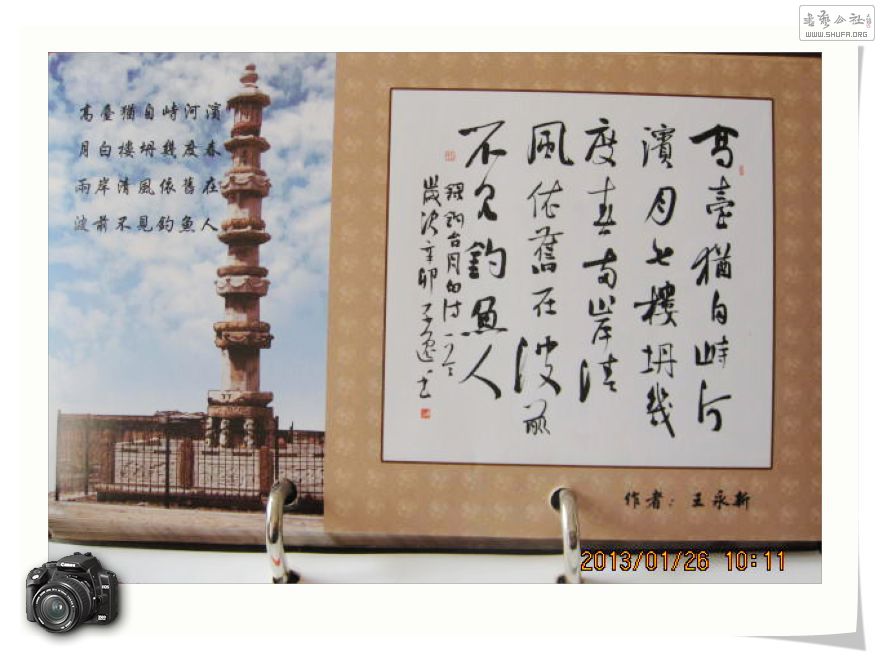 書藝公社
WWW.SHUFA.ORG
高臺猶自峙河濱
月白樓坍幾度春
兩岸清風依舊在
波前不見釣魚人
高臺猶自峙河
濱月白樓坍幾
度春兩岸清
風依舊在波前
不見釣魚人
釣台月白詩一首
歲次辛卯
作者：王永新
2013/01/26 10:11
Canon